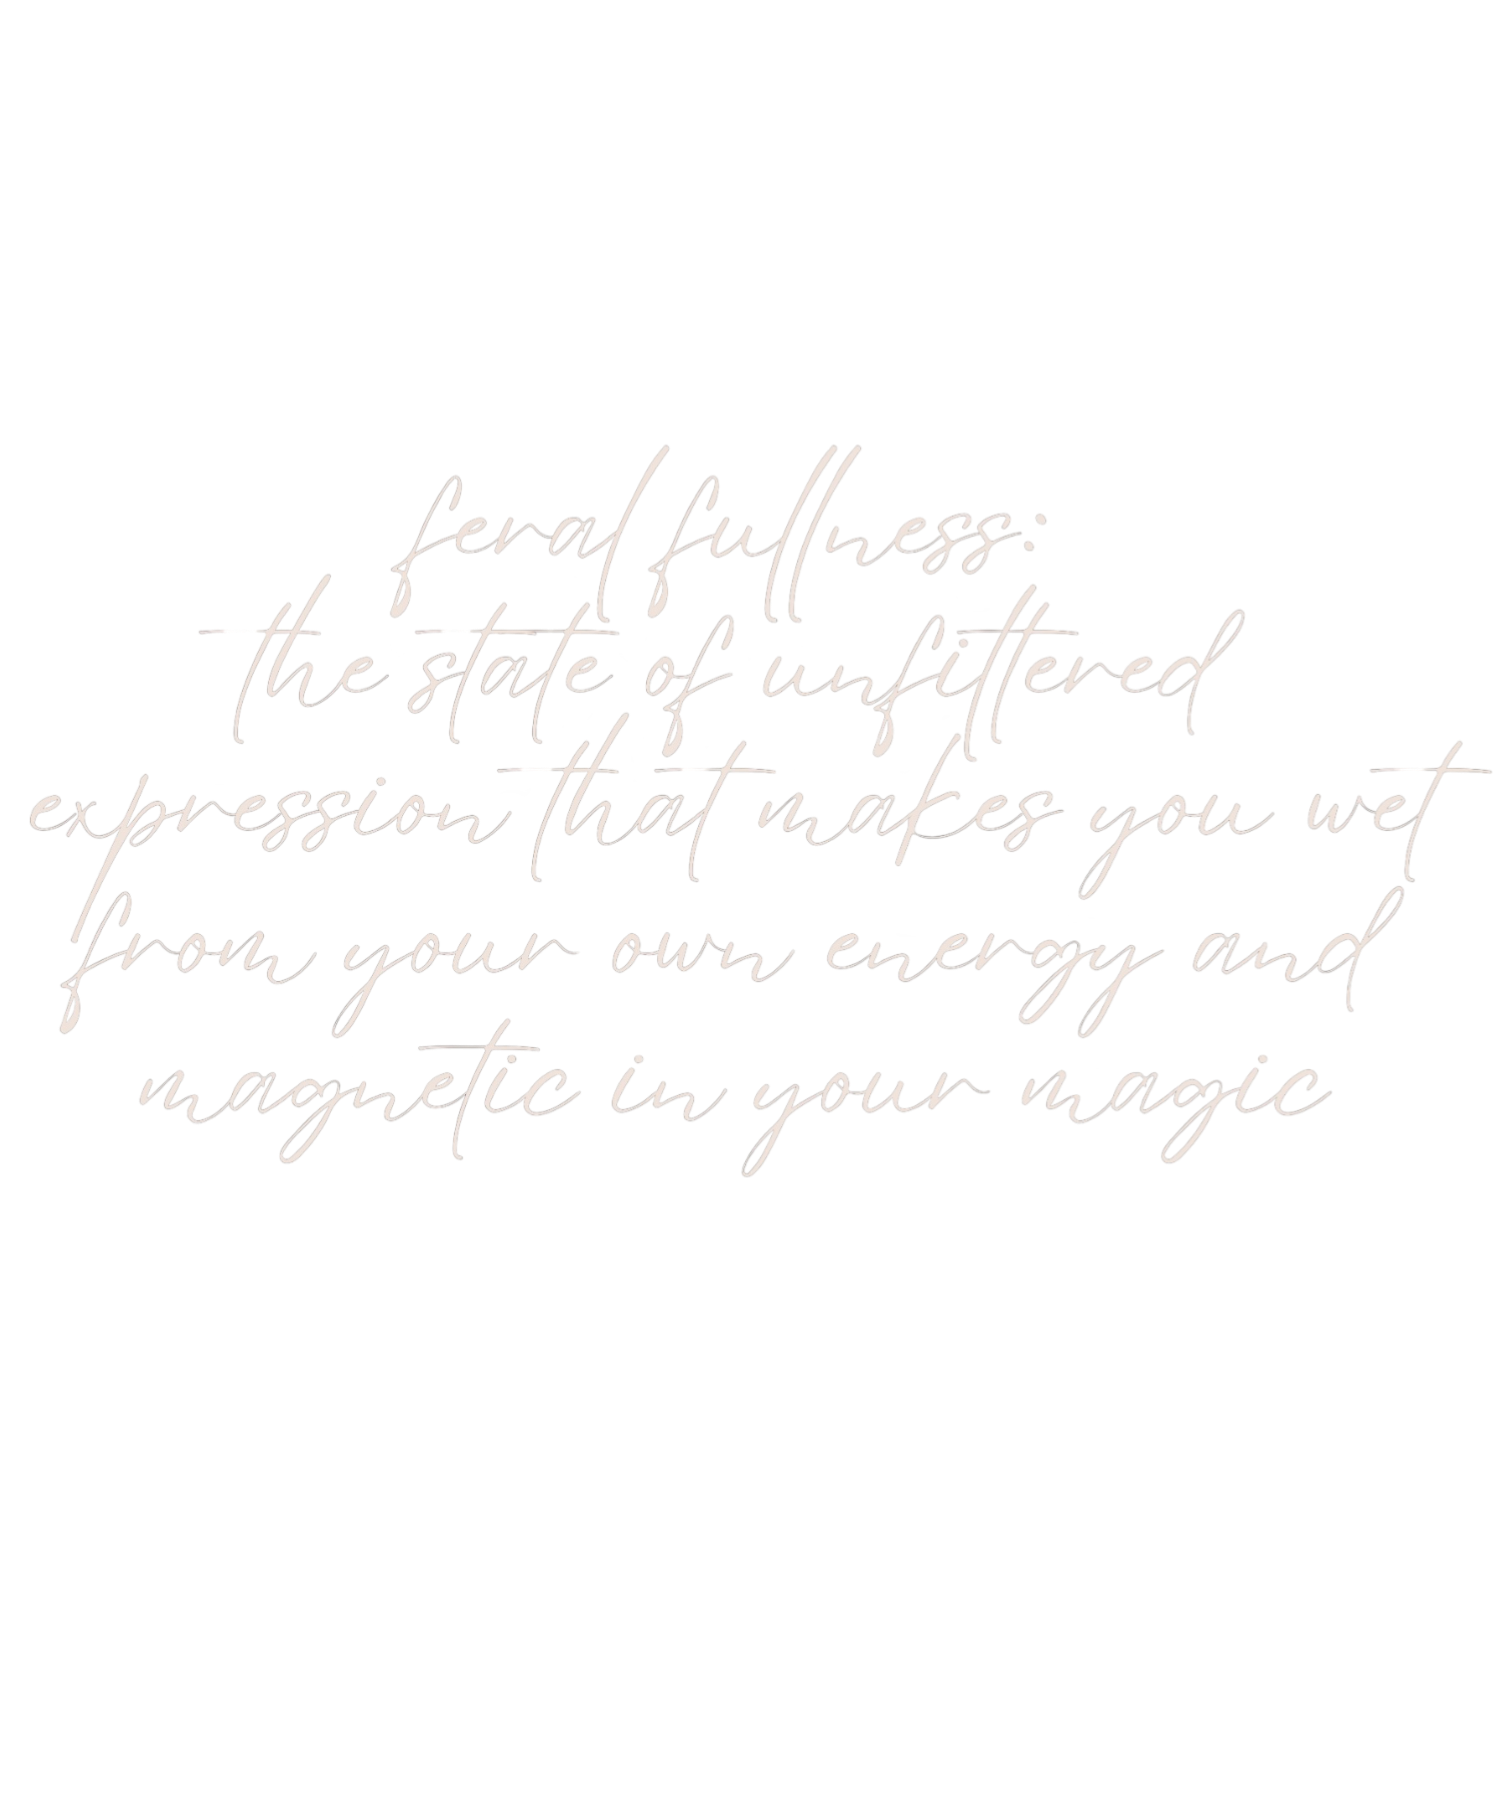 feral fullness:
the state of unfiltered
expression that makes you wet
from your own energy and
magnetic in your magic